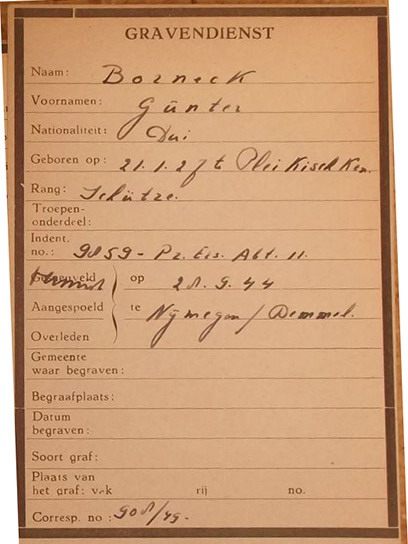 GRAVENDIENST
Naam: Borneck
Voornamen: Günter
Nationaliteit: Dui
Geboren op: 21.1.27 te Plei Kisch Ken.
Rang: Schütze.
Troepen-
onderdeel:
Indent.
no.: 9859- Pz. Ers. Abt. 11.
Gesneuveld op 28.9.44
Aangespoeld te Nÿmegen/Demmel.
Overleden
Gemeente
waar begraven:
Begraafplaats:
Datum
begraven:
Soort graf:
Plaats van
het graf: vak rij no.
Corresp. no: 908/49-